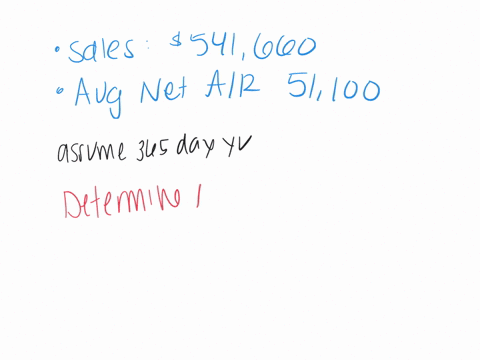 • Sales: $541,660
• Avg Net A/R 51,100
assume 365 day yr
Determine